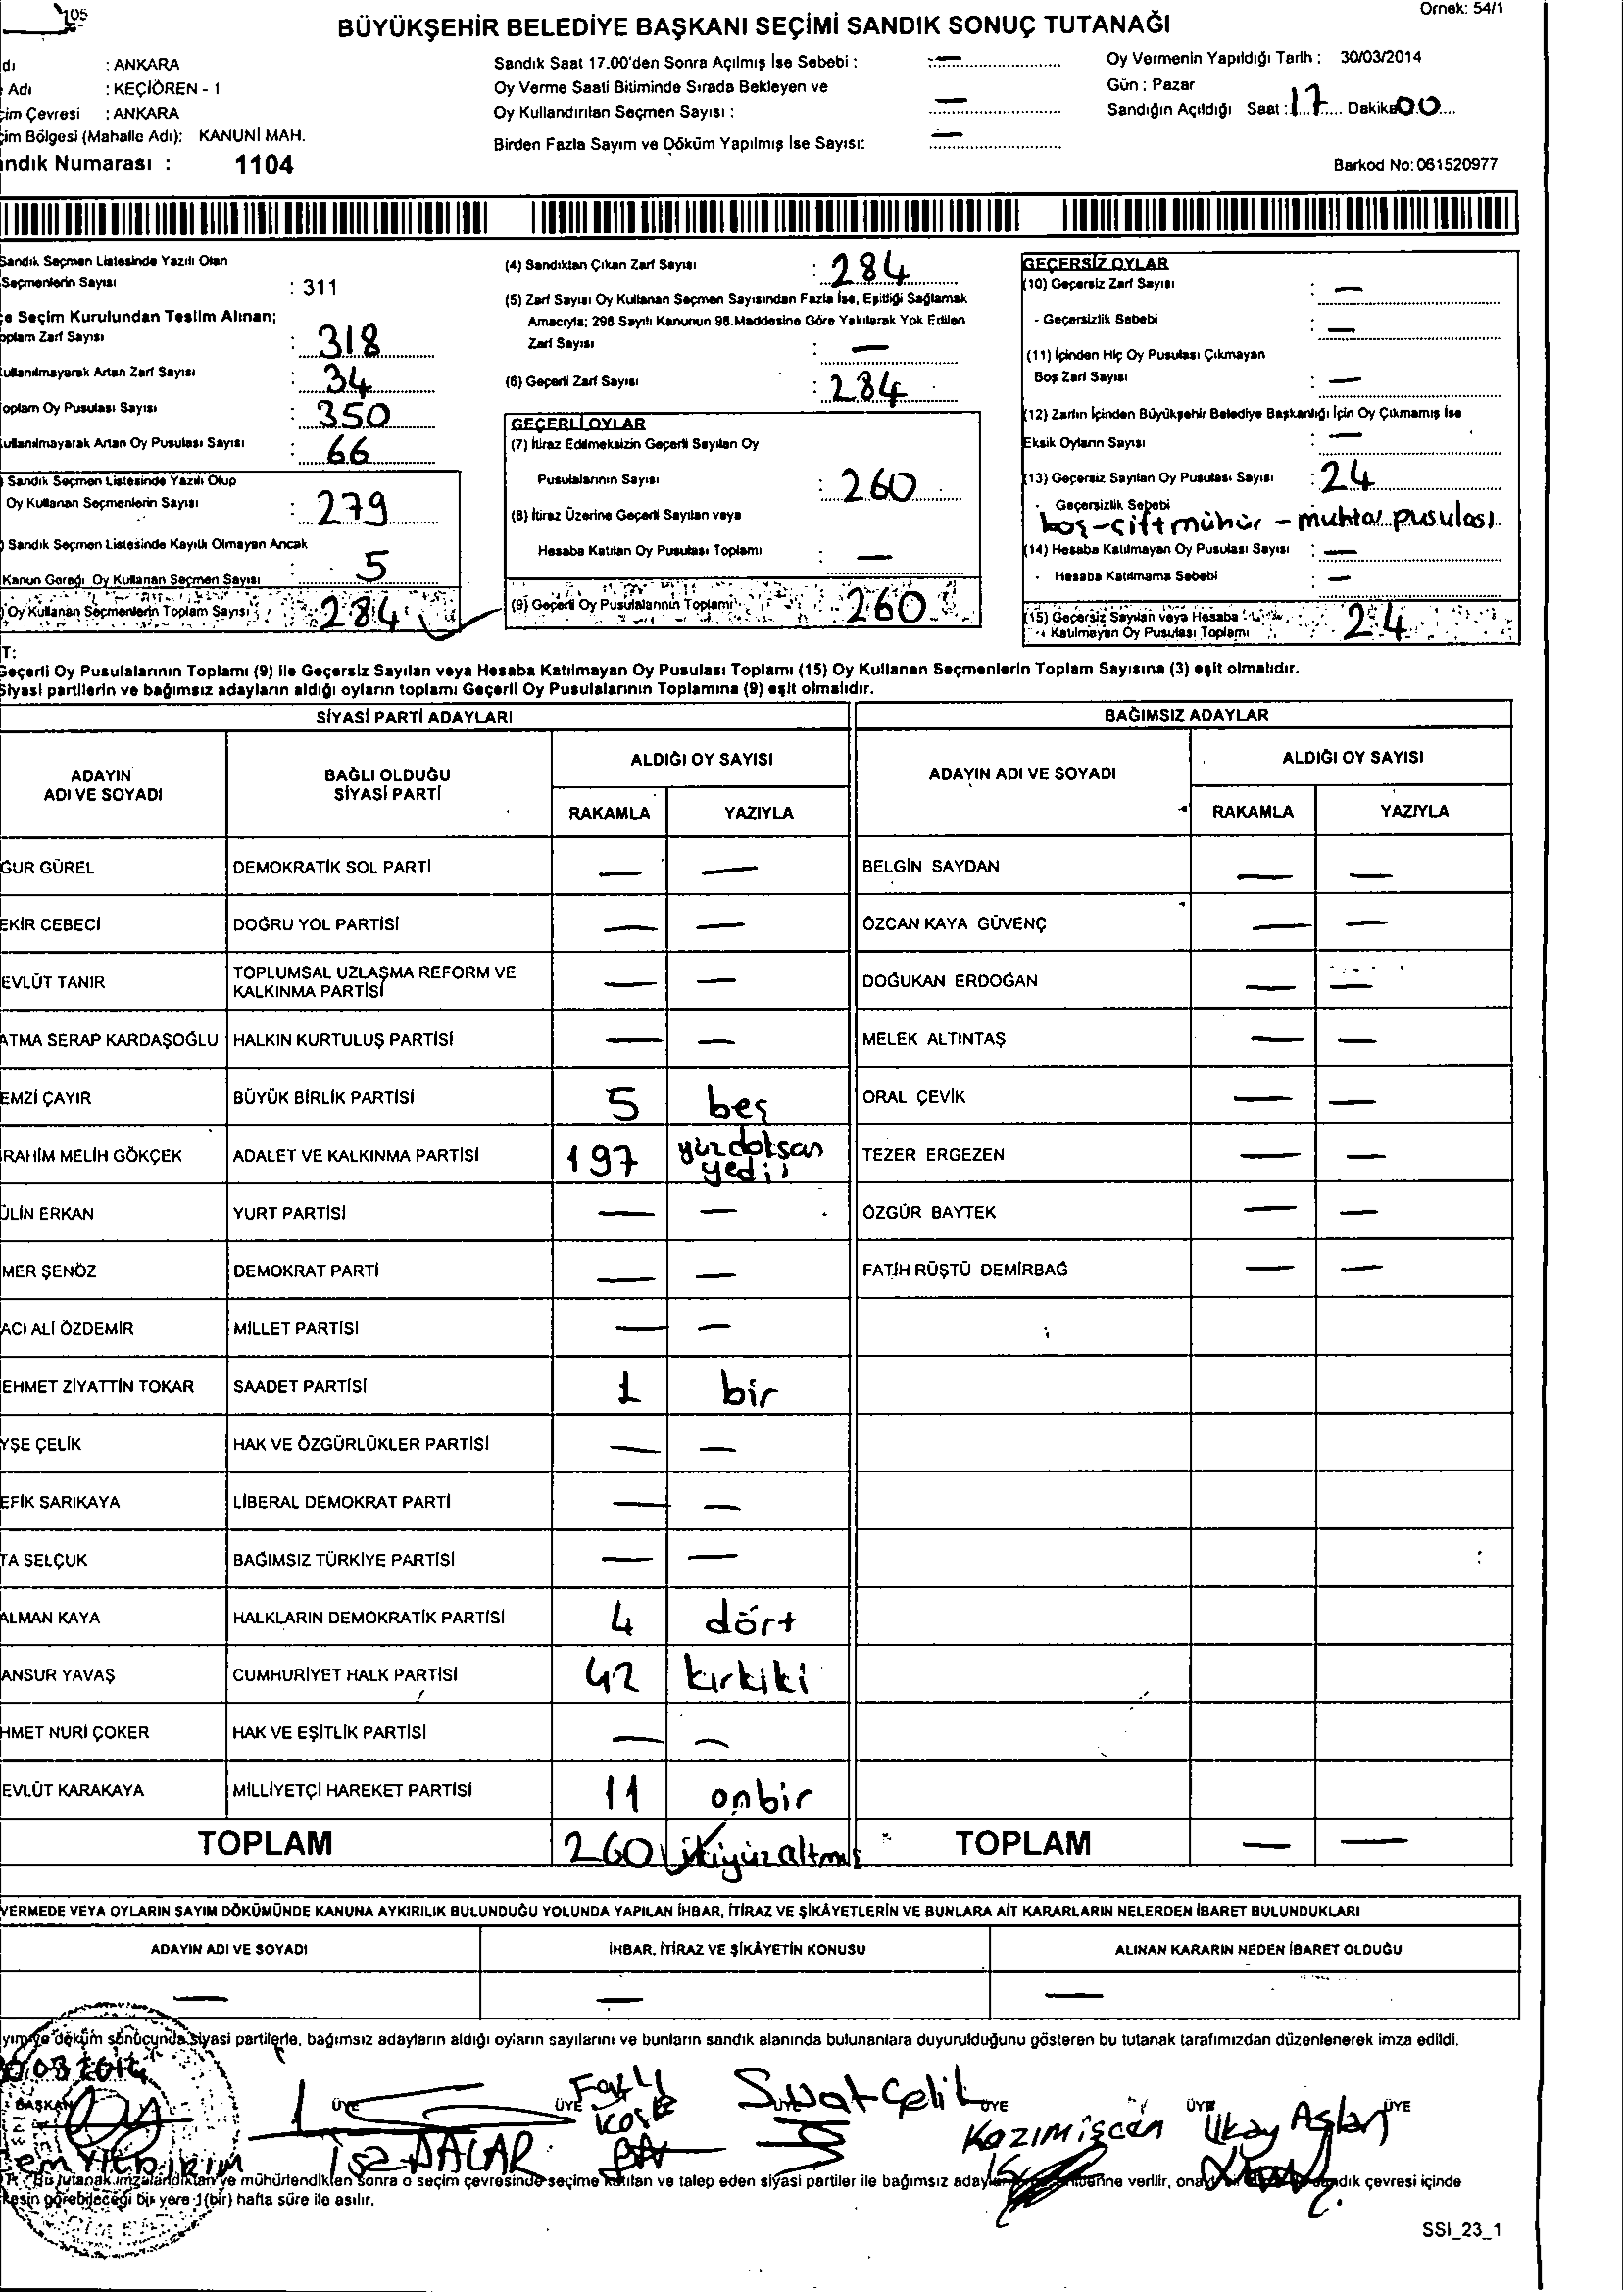 105
Örnek: 54/1
BÜYÜKŞEHİR BELEDİYE BAŞKANI SEÇİMİ SANDIK SONUÇ TUTANAĞI
dı : ANKARA
Adı : KEÇİÖREN - 1
çim Çevresi : ANKARA
çim Bölgesi (Mahalle Adı): KANUNİ MAH.
ndık Numarası : 1104
Sandık Saat 17.00'den Sonra Açılmış İse Sebebi : —
Oy Verme Saati Bitiminde Sırada Bekleyen ve
Oy Kullandırılan Seçmen Sayısı : —
Birden Fazla Sayım ve Döküm Yapılmış İse Sayısı: —
Oy Vermenin Yapıldığı Tarih : 30/03/2014
Gün : Pazar
Sandığın Açıldığı Saat : 17 Dakika 00
Barkod No: 061520977
Sandık Seçmen Listesinde Yazılı Olan
Seçmenlerin Sayısı : 311
çe Seçim Kurulundan Teslim Alınan;
oplam Zarf Sayısı : 318
ullanılmayarak Artan Zarf Sayısı : 34
oplam Oy Pusulası Sayısı : 350
ullanılmayarak Artan Oy Pusulası Sayısı : 66
Sandık Seçmen Listesinde Yazılı Olup
Oy Kullanan Seçmenlerin Sayısı : 279
) Sandık Seçmen Listesinde Kayıtlı Olmayan Ancak
Kanun Gereği Oy Kullanan Seçmen Sayısı : 5
) Oy Kullanan Seçmenlerin Toplam Sayısı : 284
(4) Sandıktan Çıkan Zarf Sayısı : 284
(5) Zarf Sayısı Oy Kullanan Seçmen Sayısından Fazla İse, Eşitliği Sağlamak
Amacıyla; 298 Sayılı Kanunun 98.Maddesine Göre Yakılarak Yok Edilen
Zarf Sayısı : —
(6) Geçerli Zarf Sayısı : 284
GEÇERLİ OYLAR
(7) İtiraz Edilmeksizin Geçerli Sayılan Oy
Pusulalarının Sayısı : 260
(8) İtiraz Üzerine Geçerli Sayılan veya
Hesaba Katılan Oy Pusulası Toplamı : —
(9) Geçerli Oy Pusulalarının Toplamı : 260
GEÇERSİZ OYLAR
(10) Geçersiz Zarf Sayısı : —
- Geçersizlik Sebebi : —
(11) İçinden Hiç Oy Pusulası Çıkmayan
Boş Zarf Sayısı : —
(12) Zarfın İçinden Büyükşehir Belediye Başkanlığı İçin Oy Çıkmamış İse
Eksik Oyların Sayısı : —
(13) Geçersiz Sayılan Oy Pusulası Sayısı : 24
- Geçersizlik Sebebi
boş - çift mühür - muhtar pusulası
(14) Hesaba Katılmayan Oy Pusulası Sayısı : —
- Hesaba Katılmama Sebebi : —
(15) Geçersiz Sayılan veya Hesaba
Katılmayan Oy Pusulası Toplamı : 24
T:
Geçerli Oy Pusulalarının Toplamı (9) ile Geçersiz Sayılan veya Hesaba Katılmayan Oy Pusulası Toplamı (15) Oy Kullanan Seçmenlerin Toplam Sayısına (3) eşit olmalıdır.
Siyasi partilerin ve bağımsız adayların aldığı oyların toplamı Geçerli Oy Pusulalarının Toplamına (9) eşit olmalıdır.
SİYASİ PARTİ ADAYLARI BAĞIMSIZ ADAYLAR
ADAYIN ADI VE SOYADI BAĞLI OLDUĞU SİYASİ PARTİ ALDIĞI OY SAYISI ADAYIN ADI VE SOYADI ALDIĞI OY SAYISI
RAKAMLA YAZIYLA RAKAMLA YAZIYLA
GUR GÜREL DEMOKRATİK SOL PARTİ — — BELGİN SAYDAN — —
EKİR CEBECİ DOĞRU YOL PARTİSİ — — ÖZCAN KAYA GÜVENÇ — —
EVLÜT TANIR TOPLUMSAL UZLAŞMA REFORM VE KALKINMA PARTİSİ — — DOĞUKAN ERDOĞAN — —
ATMA SERAP KARDAŞOĞLU HALKIN KURTULUŞ PARTİSİ — — MELEK ALTINTAŞ — —
EMZİ ÇAYIR BÜYÜK BİRLİK PARTİSİ 5 beş ORAL ÇEVİK — —
RAHİM MELİH GÖKÇEK ADALET VE KALKINMA PARTİSİ 197 yüzdoksan yedi TEZER ERGEZEN — —
ÜLİN ERKAN YURT PARTİSİ — — ÖZGÜR BAYTEK — —
MER ŞENÖZ DEMOKRAT PARTİ — — FATİH RÜŞTÜ DEMİRBAĞ — —
ACI ALİ ÖZDEMİR MİLLET PARTİSİ — —
EHMET ZİYATTİN TOKAR SAADET PARTİSİ 1 bir
YŞE ÇELİK HAK VE ÖZGÜRLÜKLER PARTİSİ — —
EFİK SARIKAYA LİBERAL DEMOKRAT PARTİ — —
TA SELÇUK BAĞIMSIZ TÜRKİYE PARTİSİ — —
ALMAN KAYA HALKLARIN DEMOKRATİK PARTİSİ 4 dört
ANSUR YAVAŞ CUMHURİYET HALK PARTİSİ 42 kırkiki
HMET NURİ ÇOKER HAK VE EŞİTLİK PARTİSİ — —
EVLÜT KARAKAYA MİLLİYETÇİ HAREKET PARTİSİ 11 onbir
TOPLAM 260 ikiyüzaltmış TOPLAM — —
VERMEDE VEYA OYLARIN SAYIM DÖKÜMÜNDE KANUNA AYKIRILIK BULUNDUĞU YOLUNDA YAPILAN İHBAR, İTİRAZ VE ŞİKÂYETLERİN VE BUNLARA AİT KARARLARIN NELERDEN İBARET BULUNDUKLARI
ADAYIN ADI VE SOYADI İHBAR, İTİRAZ VE ŞİKÂYETİN KONUSU ALINAN KARARIN NEDEN İBARET OLDUĞU
— — —
yım ve döküm sonucunda siyasi partilerle, bağımsız adayların aldığı oyların sayılarını ve bunların sandık alanında bulunanlara duyurulduğunu gösteren bu tutanak tarafımızdan düzenlenerek imza edildi.
03 2014
BAŞKAN ÜYE ÜYE ÜYE ÜYE ÜYE ÜYE
DALAR
Suat Çelik
Kazım işcan
İlkay Aslan
Bu tutanak imzalandıktan ve mühürlendikten sonra o seçim çevresinde seçime katılan ve talep eden siyasi partiler ile bağımsız verilir, çevresi içinde
kesin görebileceği bir yere 1(bir) hafta süre ile asılır.
SSI_23_1